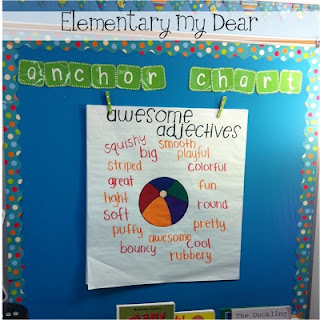 Elementary My Dear
anchor chart
awesome
adjectives
squishy smooth
big playful
striped colorful
great fun
light round
soft pretty
puffy awesome
bouncy cool
rubbery
The Duckling